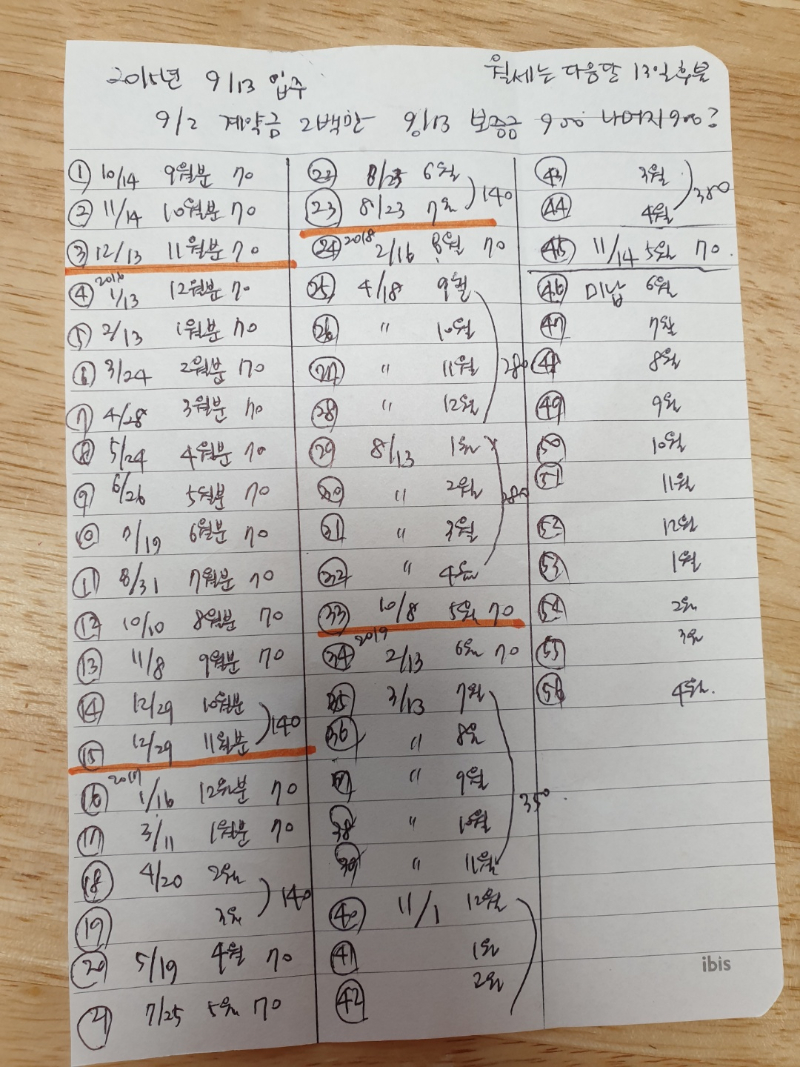 2015년 9/13 입주
월세는 다음달 13일 후불
9/2 계약금 2백만 9/13 보증금 900 나머지 900?
① 10/14 9월분 70
② 11/14 10월분 70
③ 12/13 11월분 70
2016
④ 1/13 12월분 70
⑤ 2/13 1월분 70
⑥ 3/24 2월분 70
⑦ 4/28 3월분 70
⑧ 5/24 4월분 70
⑨ 6/26 5월분 70
⑩ 7/19 6월분 70
⑪ 8/31 7월분 70
⑫ 10/10 8월분 70
⑬ 11/8 9월분 70
⑭ 12/29 10월분
140
⑮ 12/29 11월분
2017
⑯ 1/16 12월분 70
⑰ 3/11 1월분 70
⑱ 4/20 2월
140
⑲ 3월
⑳ 5/19 4월 70
㉑ 7/25 5월 70
㉒ 8/23 6월
140
㉓ 8/23 7월
2018
㉔ 2/16 8월 70
㉕ 4/18 9월
㉖ " 10월
280
㉗ " 11월
㉘ " 12월
㉙ 8/13 1월
㉚ " 2월
280
㉛ " 3월
㉜ " 4월
㉝ 10/8 5월 70
2019
㉞ 2/13 6월 70
㉟ 3/13 7월
㊱ " 8월
㊲ " 9월
350
㊳ " 10월
㊴ " 11월
㊵ 11/1 12월
㊶ 1월
㊷ 2월
㊸ 3월
380
㊹ 4월
㊺ 11/14 5월 70
㊻ 미납 6월
㊼ 7월
㊽ 8월
㊾ 9월
㊿ 10월
51 11월
52 12월
53 1월
54 2월
55 3월
56 4월
ibis